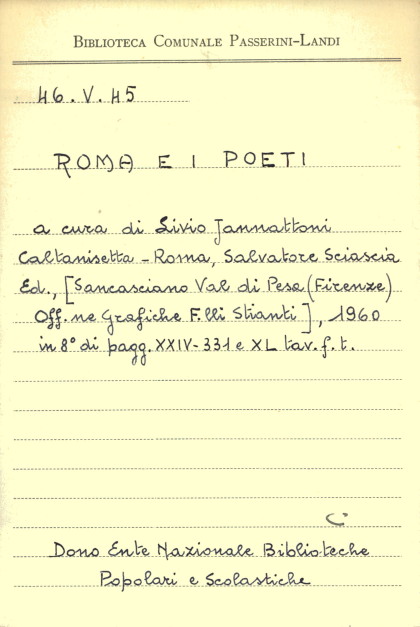 BIBLIOTECA COMUNALE PASSERINI-LANDI
46.V.45
ROMA E I POETI
a cura di Livio Jannattoni
Caltanisetta - Roma, Salvatore Sciascia
Ed., [Sancasciano Val di Pesa (Firenze)
Off.ne Grafiche F.lli Stianti], 1960
in 8° di pagg. XXIV-331 e XL tav. f. t.
Dono Ente Nazionale Biblioteche
Popolari e Scolastiche